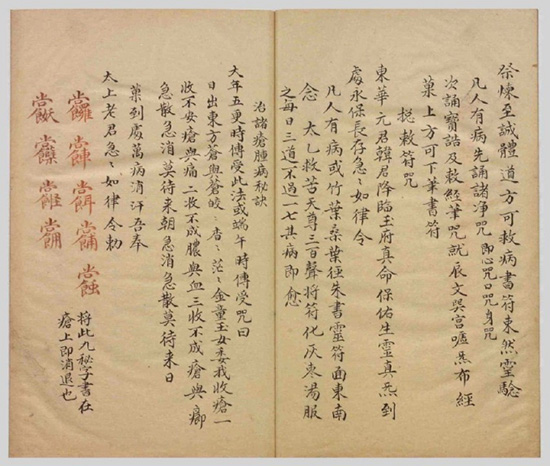 祭煉至誠體道方可救病書符果然靈驗
凡人有病先誦諸淨咒即心咒口咒身咒
次誦寶誥及敕經筆咒就辰文炁宮噓炁布經
菓上方可下筆書符
敕符咒
東華元君韓君降臨王府真命保佑生靈真炁到
處永保長存急〻如律令
凡人有病或竹葉桑葉徑朱書靈符面東南
念 太乙救苦天尊三百聲將符化灰棗湯服
之每日三道不過一七其病即愈
治諸瘡腫病秘訣
大年五更時傳受此法或端午時傳受咒曰
日出東方蒼與蒼皎〻者〻茫〻金童玉女委我收瘡一
收不安瘡與痛二收不成膿與血三收不成瘡與癤
急散急消莫待來朝急消急散莫待來日
菓到處萬病消汗吾奉
太上老君急〻如律令勅
將此九秘字書在
瘡上即消退也